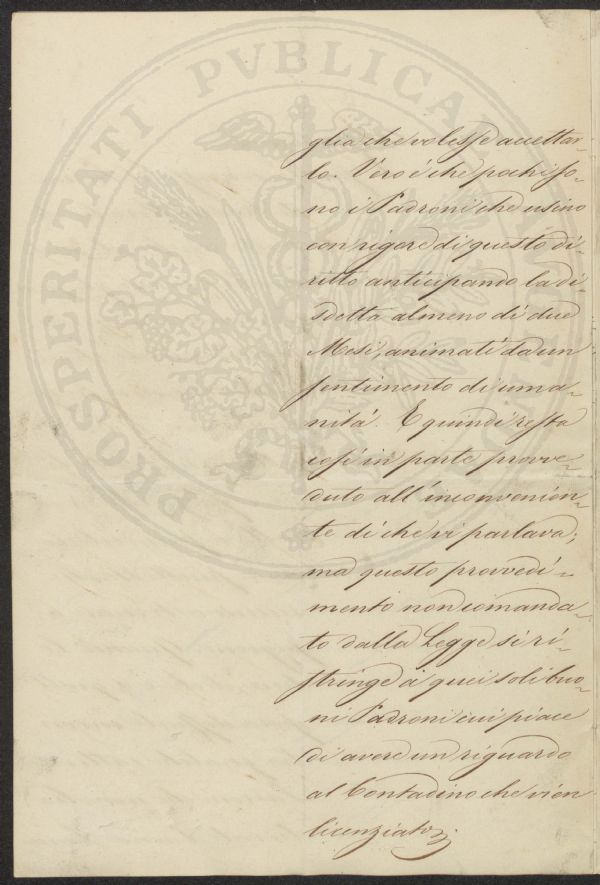 PROSPERITATI PVBLICAE
glia che volesse accettar-
lo. Vero é che pochi so-
no i Padroni che usino
con rigore di questo di-
ritto anticipando la di-
sdetta almeno di due
Mesi, animati da un
sentimento di uma-
nitá. E quindi resta
cosi in parte provve-
duto all'inconvenien-
te di che vi parlava;
ma questo provvedi-
mento non comanda-
to dalla Legge si ri-
stringe a quei soli buo-
ni Padroni cui piace
di avere un riguardo
al Contadino che vien
licenziato;